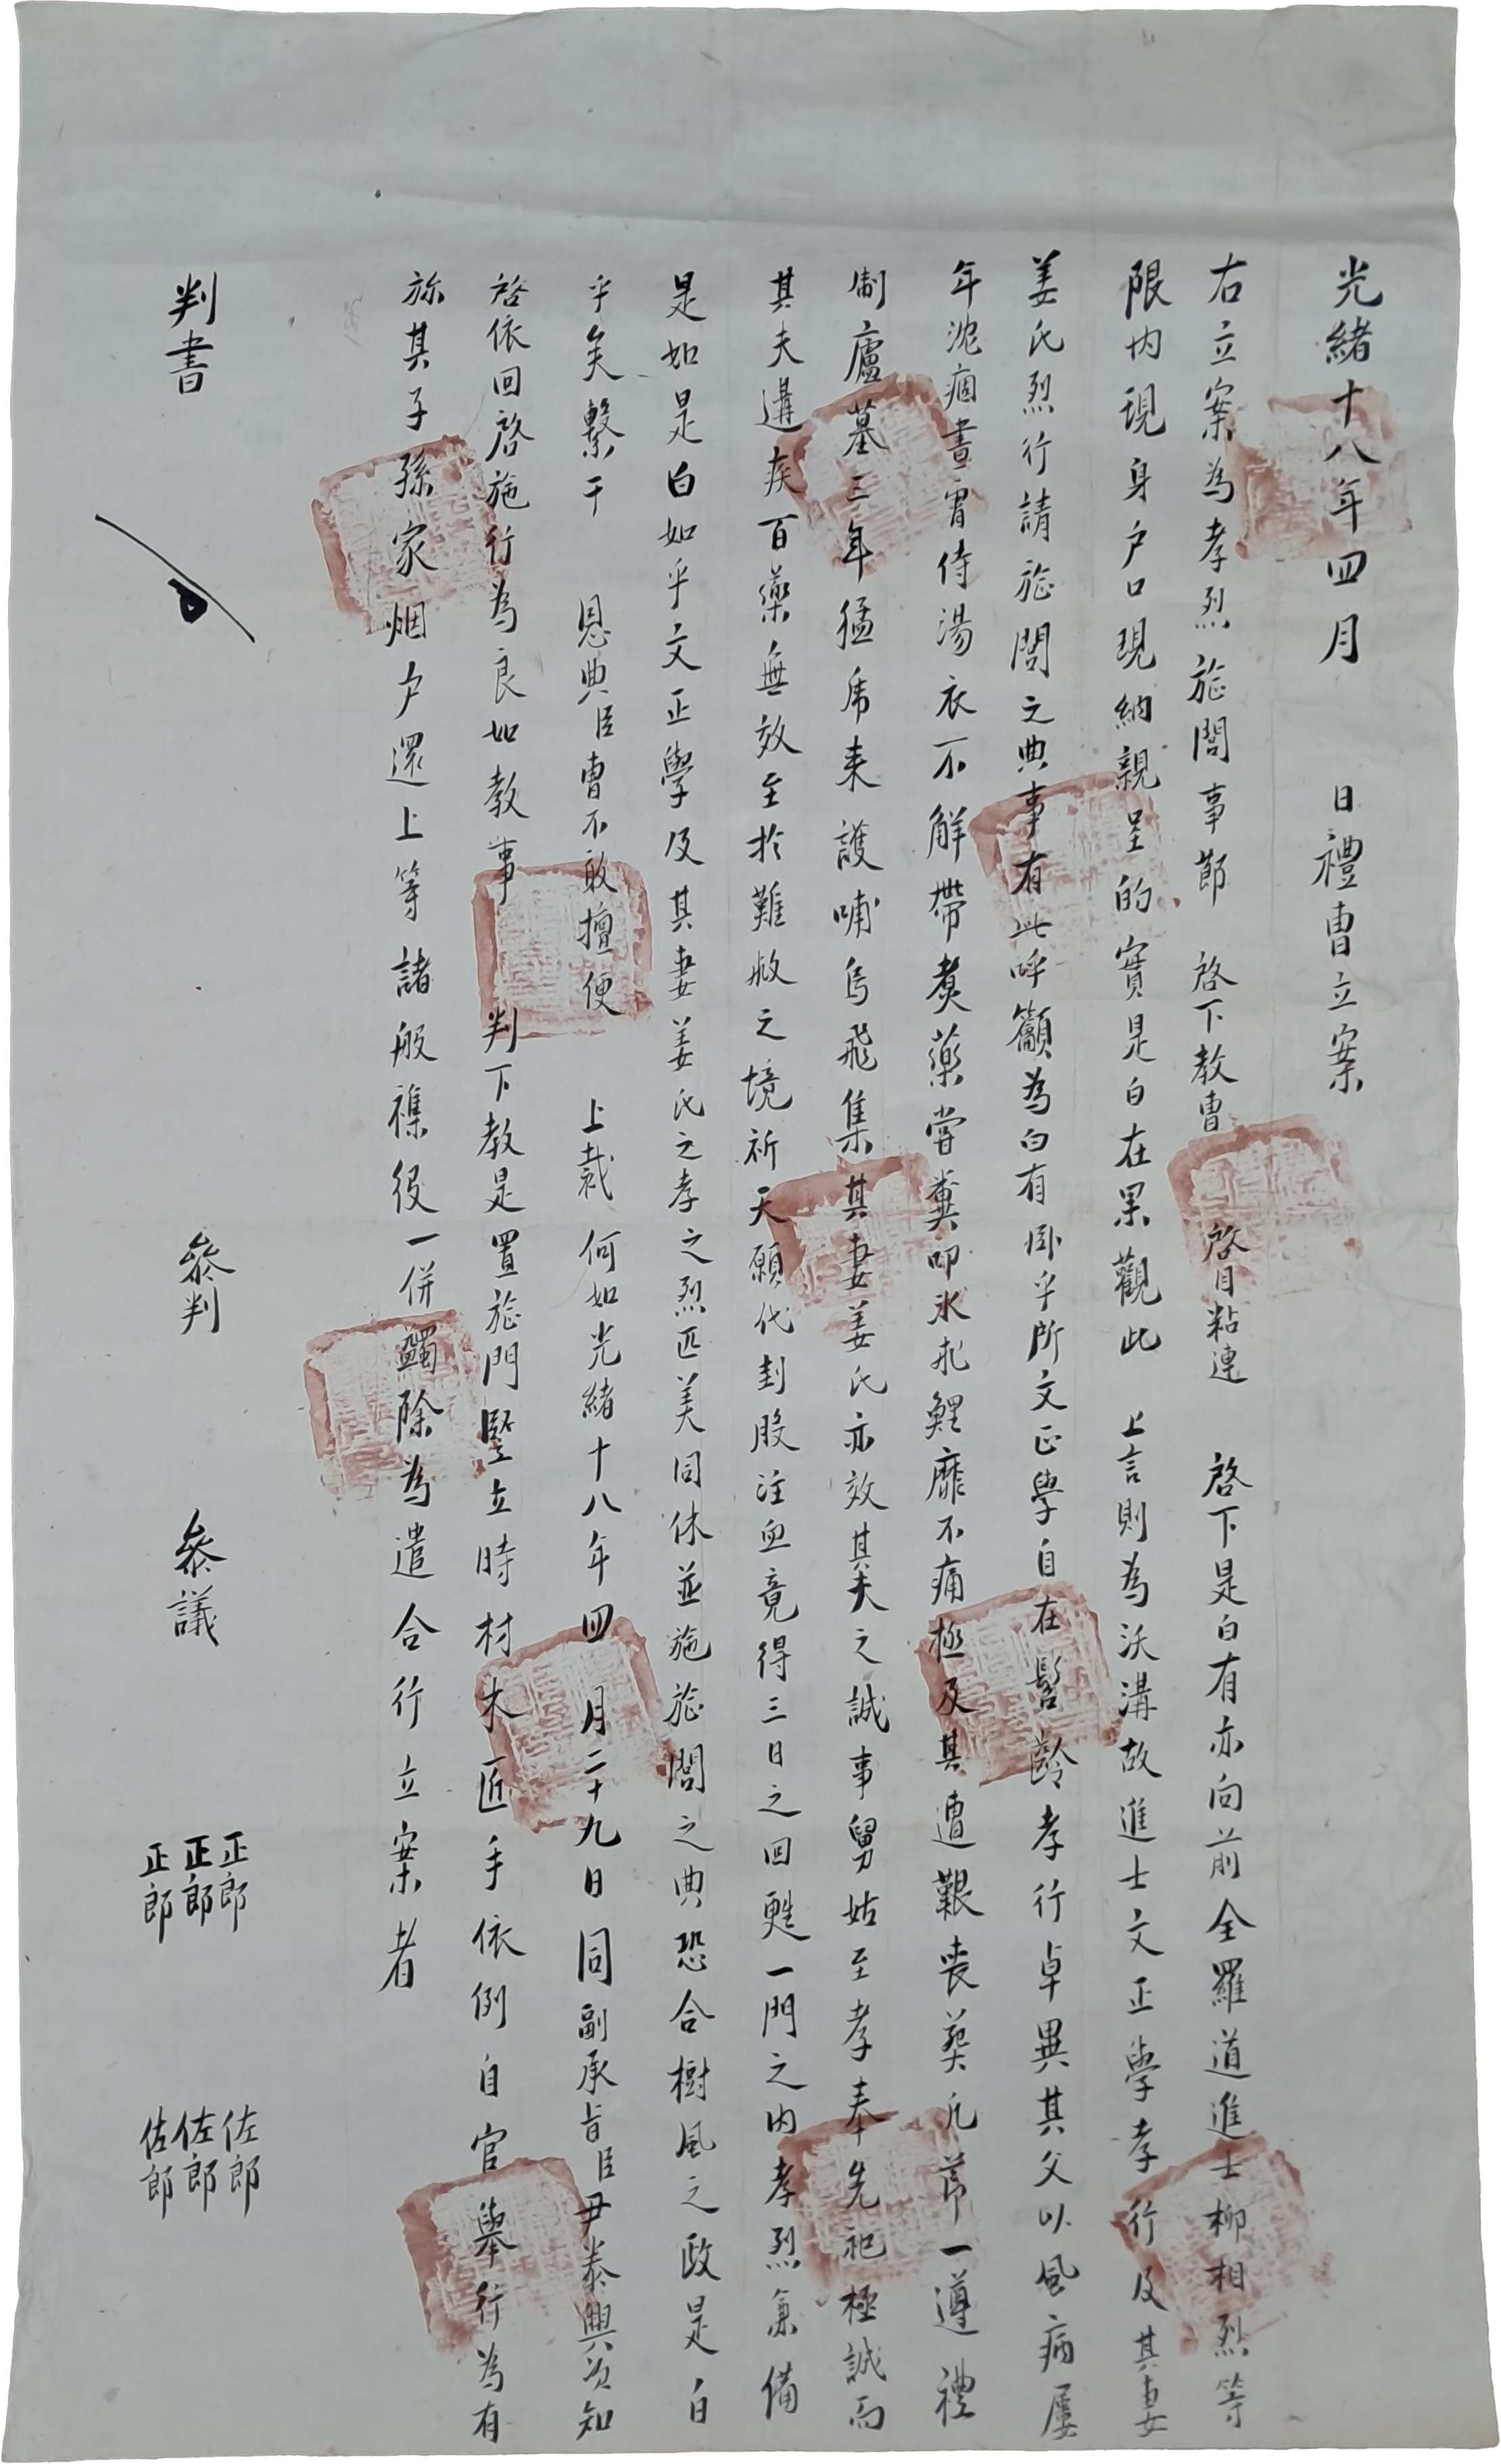 光緖十八年四月 日禮曹立案
右立案為孝烈旌閭事節 啓下敎曹 啓目粘連 啓下是白有亦向前全羅道進士柳相烈等
限內現身戶口現納親呈的實是白在果觀此 上言則為沃溝故進士文正學孝行及其妻
姜氏烈行請旌閭之典事有此呼籲為白有臥乎所文正學自在髫齡孝行卓異其父以風病屢
年沈痼晝宵侍湯衣不解帶煑藥嘗糞叩氷求鯉靡不痛極及其遭艱喪葬凡節一遵禮
制廬墓三年猛虎来護哺烏飛集其妻姜氏亦效其夫之誠事舅姑至孝奉先祀極誠而
其夫遘疾百藥無效至於難救之境祈天願代刲股注血竟得三日之回甦一門之內孝烈兼備
是如是白如乎文正學及其妻姜氏之孝之烈匹美同休並施旌閭之典恐合樹風之政是白
乎矣繫干 恩典臣曹不敢擅便 上裁何如光緖十八年四月二十九日同副承旨臣尹泰興次知
啓依回啓施行為良如敎事 判下敎是置旌門竪立時材木匠手依例自官擧行為有
旀其子孫家烟戶還上等諸般襍役一併蠲除為遣合行立案者
判書
參判
參議
正郎
正郎
正郎
佐郎
佐郎
佐郎